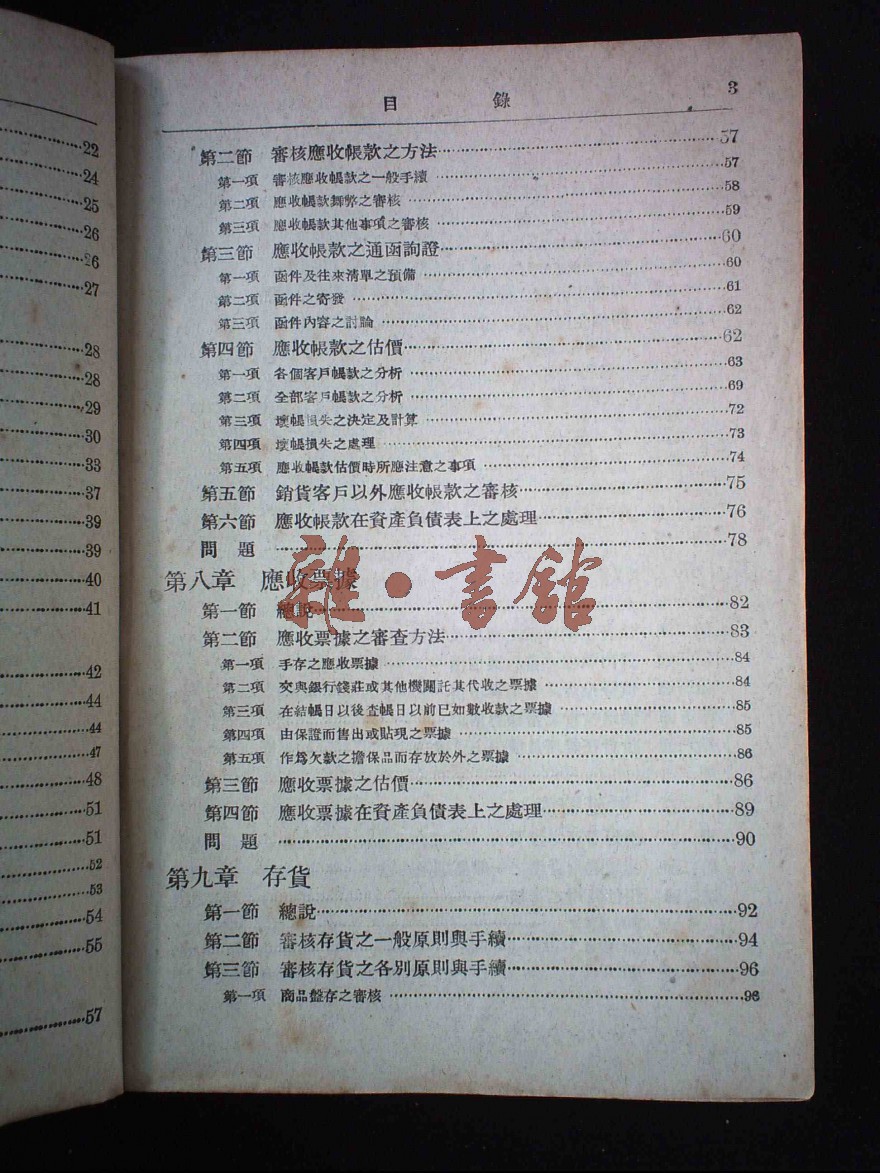 22
24
25
26
26
27
28
28
29
30
33
37
39
39
40
41
42
44
44
47
48
51
51
52
53
54
55
57
目 錄 3
第二節 審核應收帳款之方法 57
第一項 審核應收帳款之一般手續 57
第二項 應收帳款舞弊之審核 58
第三項 應收帳款其他事項之審核 59
第三節 應收帳款之通函詢證 60
第一項 函件及往來清單之預備 60
第二項 函件之寄發 61
第三項 函件內容之討論 62
第四節 應收帳款之估價 62
第一項 各個客戶帳款之分析 63
第二項 全部客戶帳款之分析 69
第三項 壞帳損失之決定及計算 72
第四項 壞帳損失之處理 73
第五項 應收帳款估價時所應注意之事項 74
第五節 銷貨客戶以外應收帳款之審核 75
第六節 應收帳款在資產負債表上之處理 76
問題 78
第八章 應收票據
雜·書館
第一節 總說 82
第二節 應收票據之審查方法 83
第一項 手存之應收票據 84
第二項 交與銀行錢莊或其他機關託其代收之票據 84
第三項 在結帳日以後查帳日以前已如數收款之票據 85
第四項 由保證而售出或貼現之票據 85
第五項 作爲欠款之擔保品而存放於外之票據 86
第三節 應收票據之估價 86
第四節 應收票據在資產負債表上之處理 89
問題 90
第九章 存貨
第一節 總說 92
第二節 審核存貨之一般原則與手續 94
第三節 審核存貨之各別原則與手續 96
第一項 商品盤存之審核 96